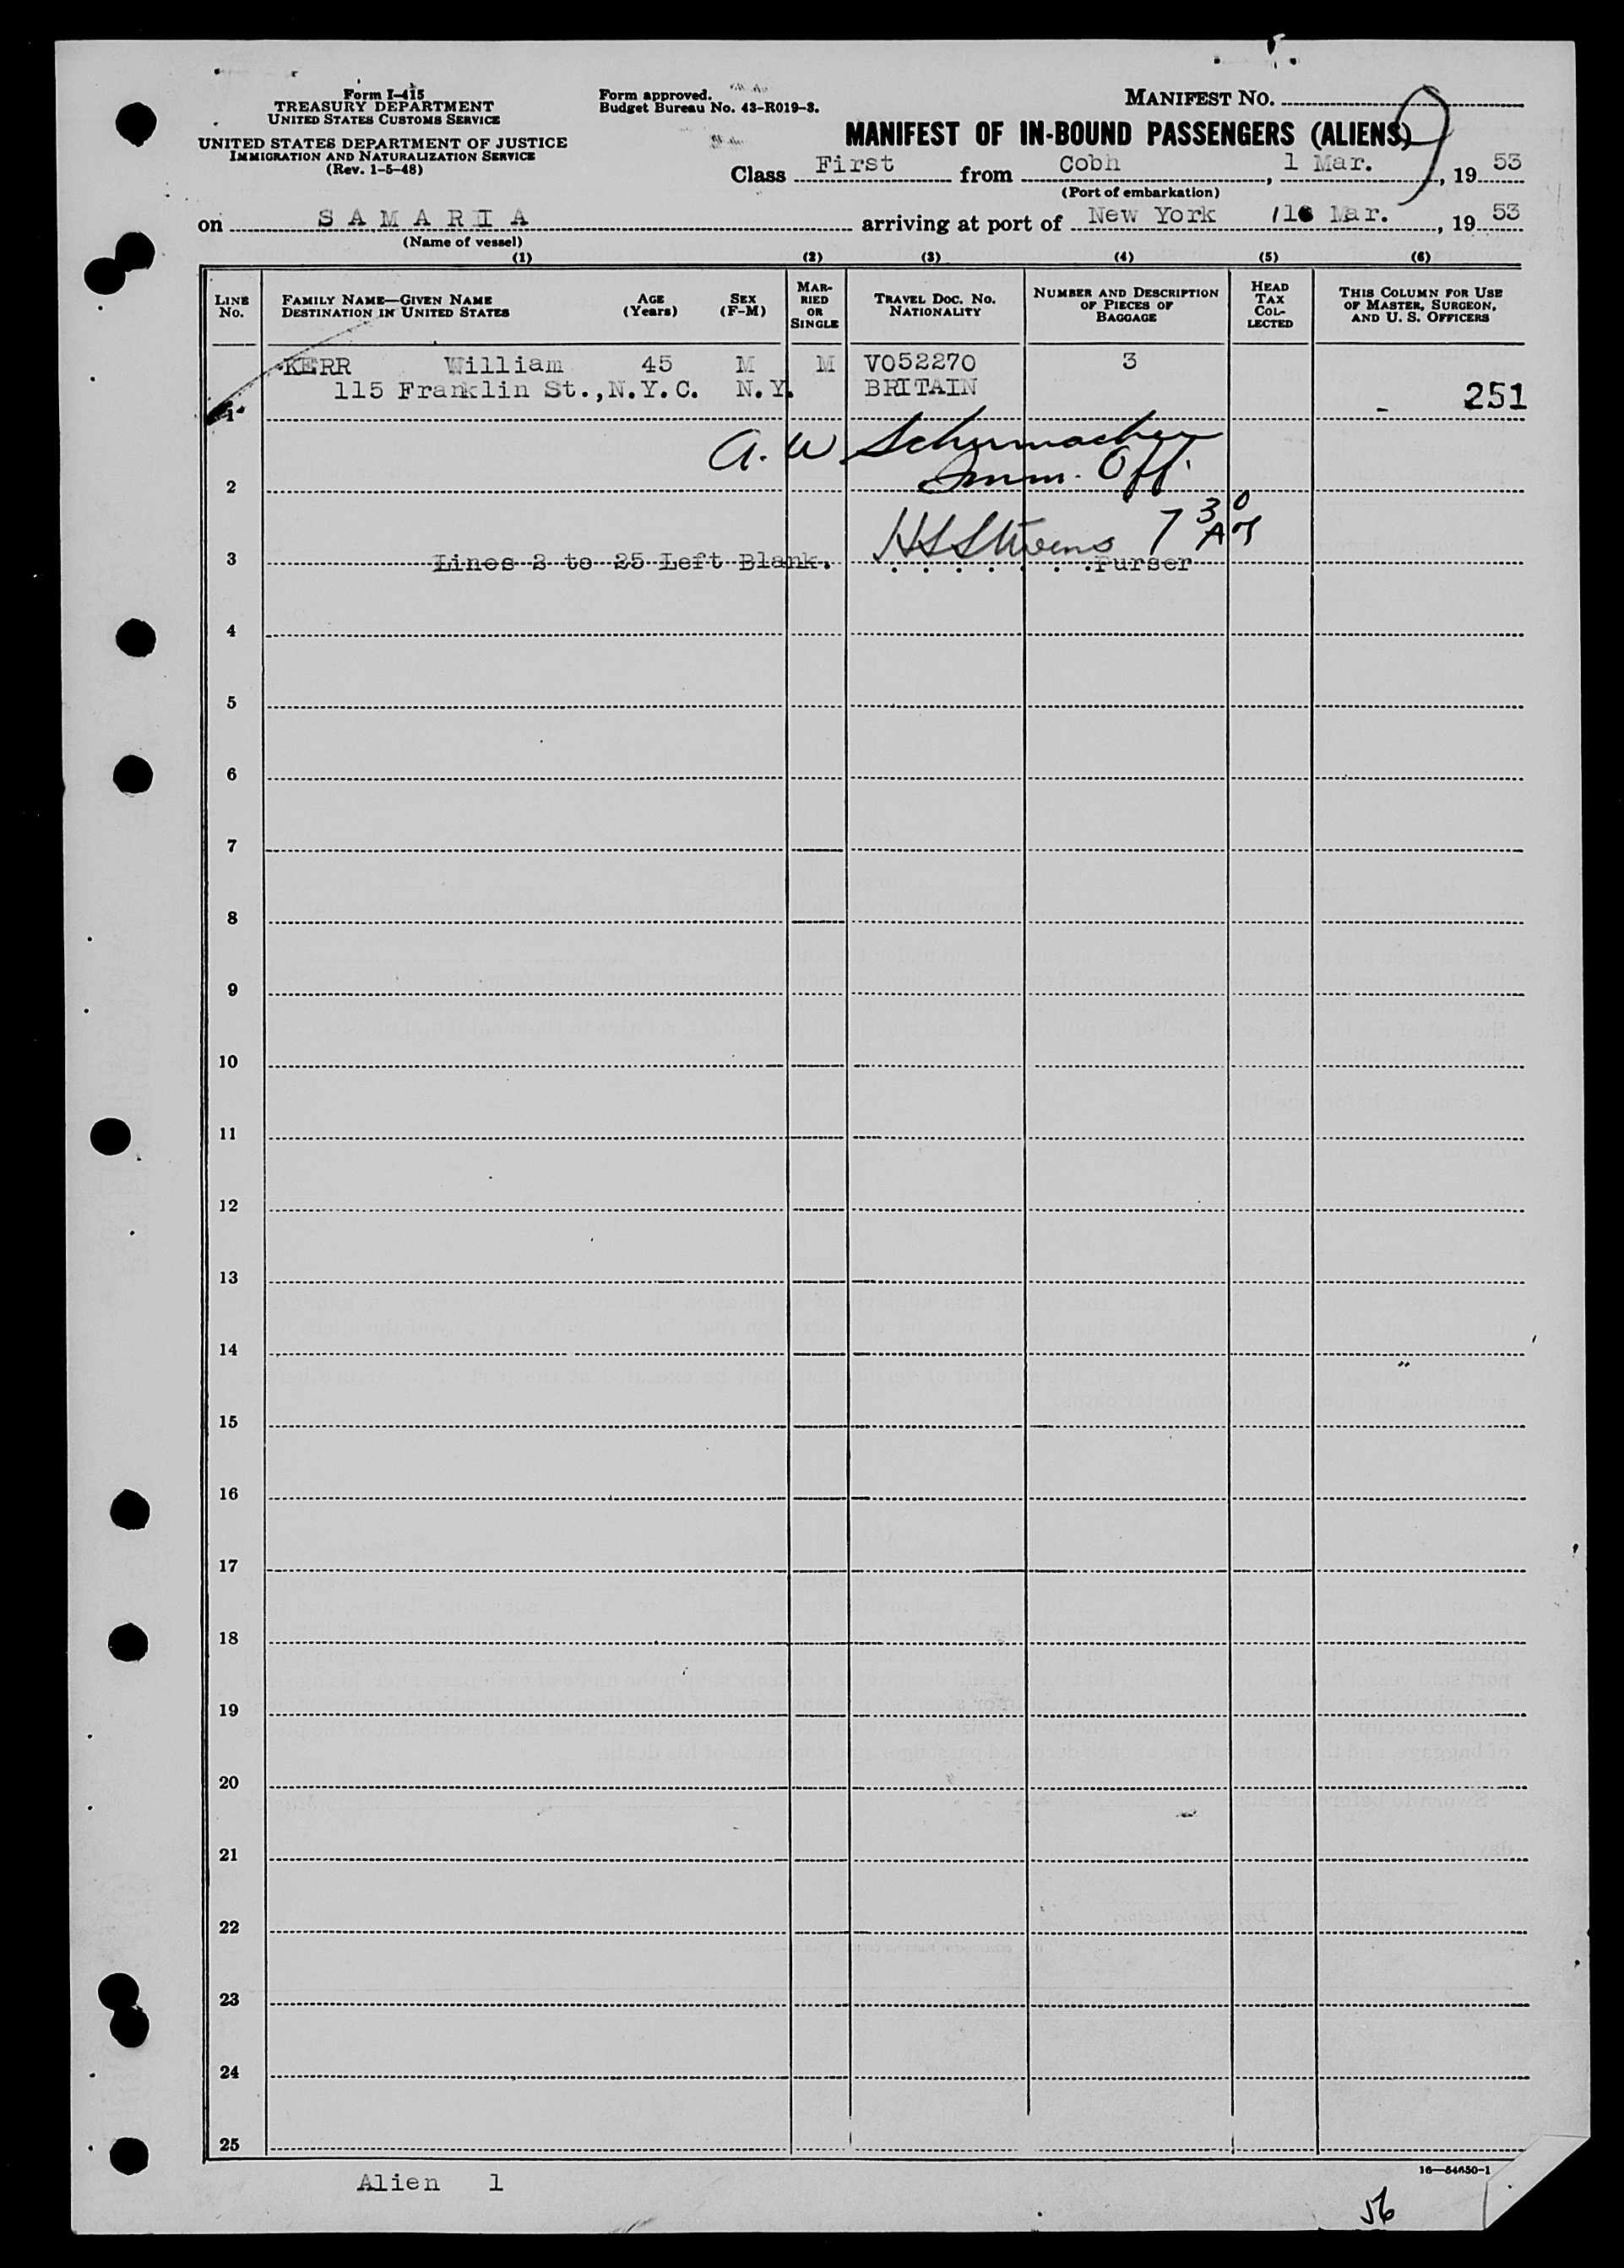 Form I-415
TREASURY DEPARTMENT
UNITED STATES CUSTOMS SERVICE
UNITED STATES DEPARTMENT OF JUSTICE
IMMIGRATION AND NATURALIZATION SERVICE
(Rev. 1-5-48)
Form approved.
Budget Bureau No. 43-R019-3.
MANIFEST NO.
MANIFEST OF IN-BOUND PASSENGERS (ALIENS)
Class First from Cobh, 1 Mar., 19 53
(Port of embarkation)
on SAMARIA arriving at port of New York Mar., 19 53
(Name of vessel)
(1) (2) (3) (4) (5) (6)
LINE NO.
FAMILY NAME—GIVEN NAME
DESTINATION IN UNITED STATES
AGE (Years)
SEX (F-M)
MARRIED OR SINGLE
TRAVEL DOC. NO.
NATIONALITY
NUMBER AND DESCRIPTION OF PIECES OF BAGGAGE
HEAD TAX COLLECTED
THIS COLUMN FOR USE OF MASTER, SURGEON, AND U. S. OFFICERS
KERR William 45 M M V052270 3
115 Franklin St., N.Y.C. N.Y. BRITAIN 251
1
A. W. Schumacher
Imm. Off.
2
7 30
Lines 2 to 25 Left Blank. Purser
3
4
5
6
7
8
9
10
11
12
13
14
15
16
17
18
19
20
21
22
23
24
25
16—54650-1
Alien 1
56